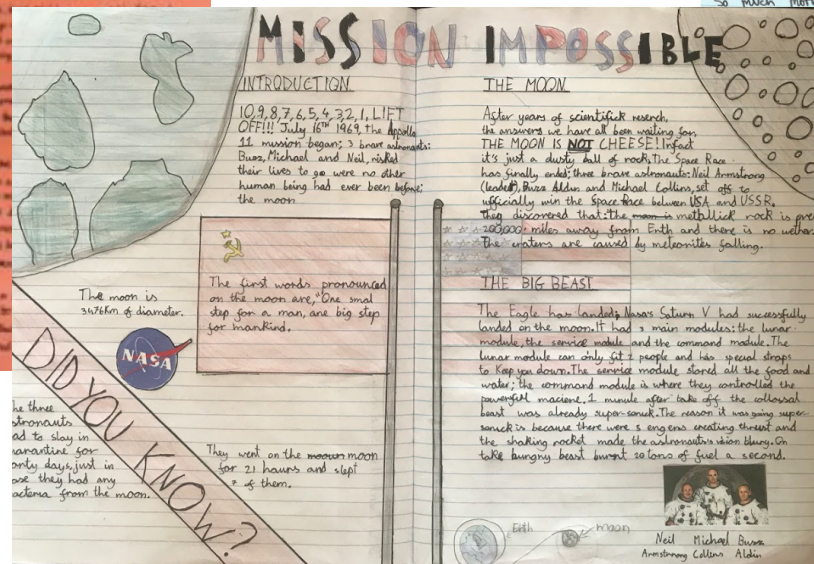 So much more
MISSION IMPOSSIBLE
INTRODUCTION
10,9,8,7,6,5,4,3,2,1, LIFT
OFF!!! July 16TH 1969, the Appollo
11 mission began; 3 brave astronauts:
Buzz, Michael and Neil, risked
their lives to go were no other
human being had ever been before:
the moon
The first words pronounced
on the moon are, "One smal
step for a man, one big step
for mankind.
The moon is
3476Km of diameter.
NASA
DID YOU KNOW?
he three
stronauts
ad to stay in
uarantine for
only days, just in
ase they had any
acteria from the moon.
They went on the moon
for 21 hours and slept
7 of them.
THE MOON
After years of scientifick reserch,
the answers we have all been waiting for,
THE MOON IS NOT CHEESE! Infact
it's just a dusty ball of rock. The Space Race
has finally ended; three brave astronauts: Neil Armstrong
(leader), Buzz Aldin and Michael Collins, set off to
ufficially win the Space Race between USA and USSR.
They discovered that: the moon is metallick rock is over
200,000 miles away from Erth and there is no wether.
The craters are caused by meteorites falling.
THE BIG BEAST
The Eagle has landed; Nasa's Saturn V had successfully
landed on the moon. It had 3 main modules: the lunar
module, the service module and the command module. The
lunar module can only fit 2 people and has special straps
to Keep you down. The service module stored all the food and
water; the command module is where they controlled the
powerful maciene. 1 minute after take off the collossal
beast was already super-sonick. The reason it was going super-
sonick is because there were 5 engens creating thrust and
the shaking rocket made the astronauts vision blury. On
take bungny beast burnt 20 tons of fuel a second.
Erth
moon
Neil Michael Buzz
Armstrong Collens Aldin